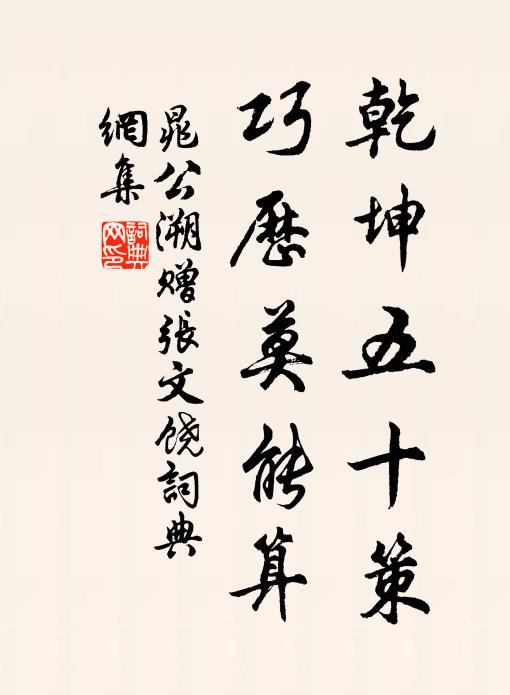 乾坤五十策
巧歷莫能算
晁公溯贈張文饒詞典
網集
詞典
网印